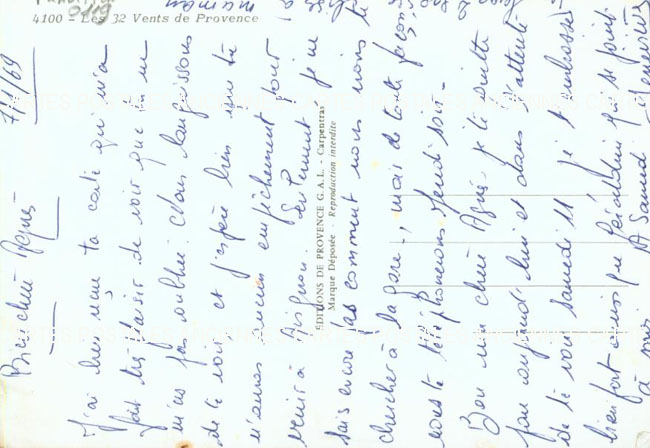 4100 - Les 32 Vents de Provence
ÉDITIONS DE PROVENCE G.A.L. - Carpentras
Marque Déposée - Reproduction interdite
7/1/69
Bien chère Agnès
J'ai bien reçu ta carte qui m'a
fait très plaisir de voir que tu ne
m'as pas oublié. Nous languissons
de te voir et j'espère bien que tu
n'auras aucun empêchement pour
venir à Avignon. Seulement je ne
sais encore pas comment nous irons te
chercher à la gare, mais de toute façon
nous te téléphonerons jeudi soir.
Bon ma chère Agnès je te quitte
pour aujourd'hui et dans l'attente
de te voir samedi 11 je t'embrasse
bien fort ainsi que
A Samedi
maman